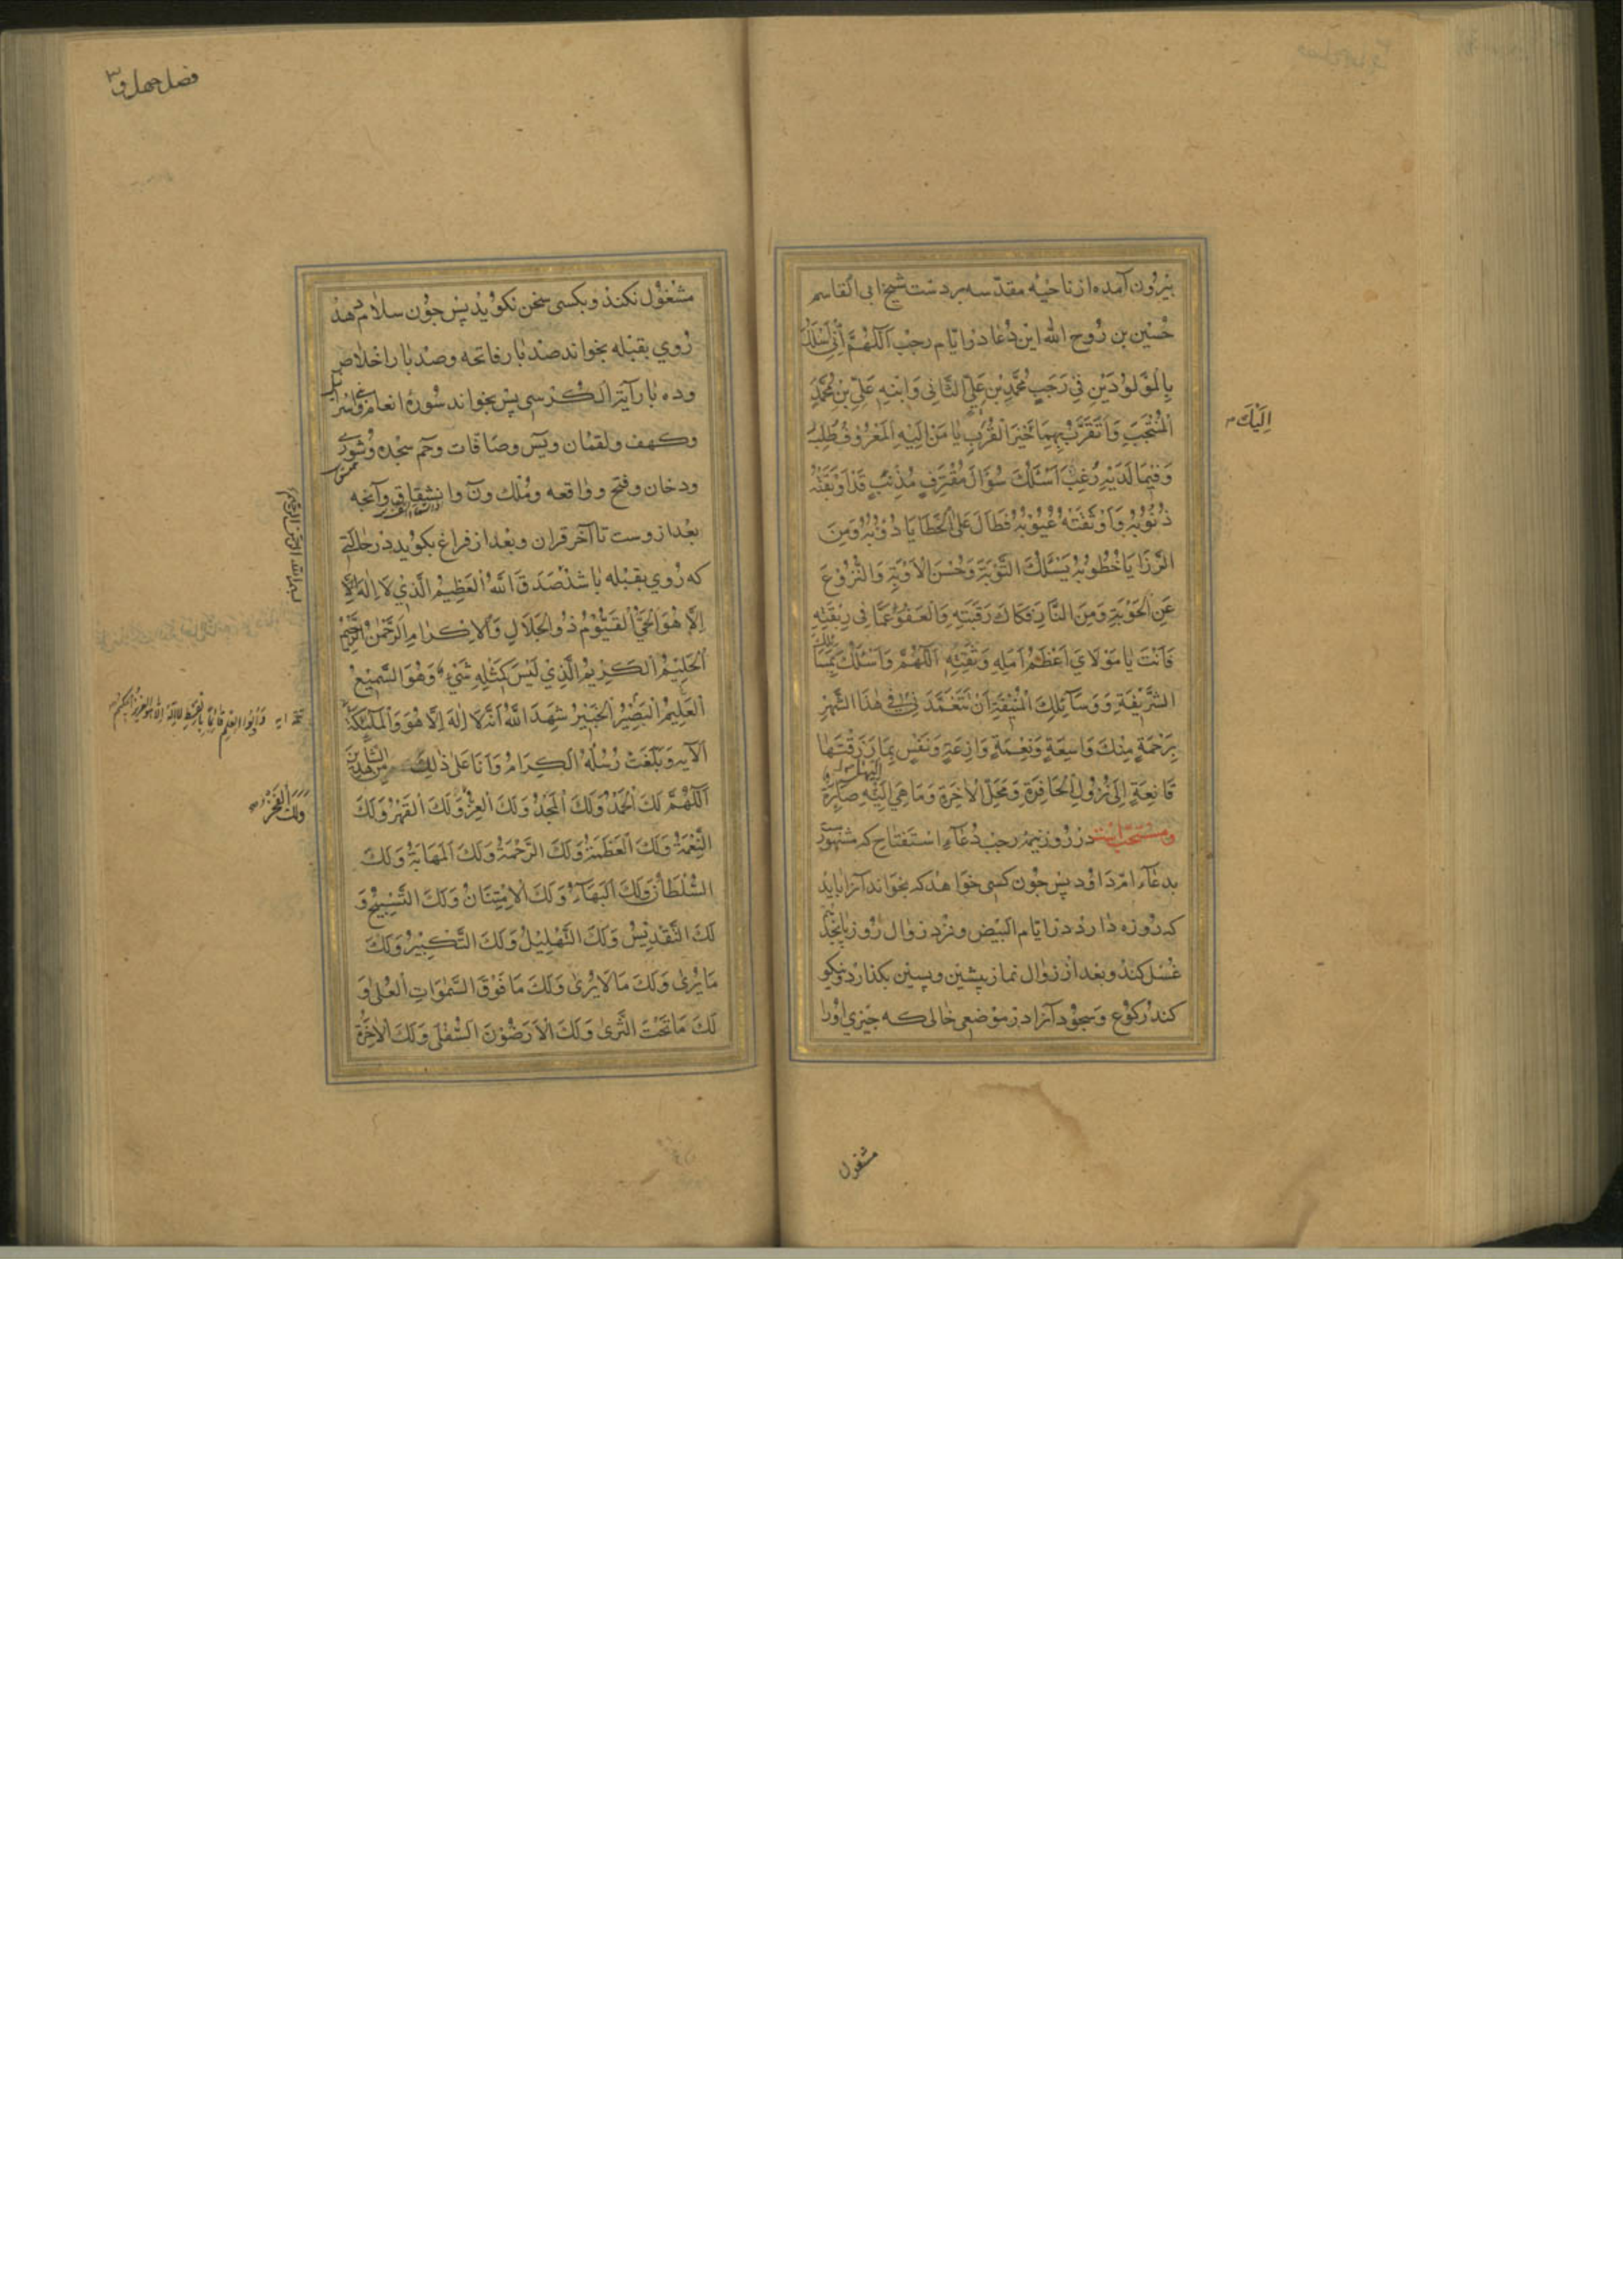 بیرون آمده از ناحیه مقدسه بردست شیخ ابی القاسم
حسین بن روح الله این دعا در ایام رجب اَللّٰهُمَّ اِنّی اَسْئَلُكَ
بِالْمَوْلُودَیْنِ فِی رَجَبٍ مُحَمَّدِ بْنِ عَلِیٍّ الثَّانِی وَابْنِهِ عَلِیِّ بْنِ مُحَمَّدٍ
الْمُنْتَجَبِ وَاَتَقَرَّبُ بِهِمَا خَیْرَ الْقُرَبِ یَا مَنْ اِلَیْهِ الْمَعْرُوفُ طُلِبَ
اِلَیْكَ
وَفِیمَا لَدَیْهِ رُغِبَ اَسْئَلُكَ سُؤَالَ مُقْتَرِفٍ مُذْنِبٍ قَدْ اَوْبَقَتْهُ
ذُنُوبُهُ وَاَوْثَقَتْهُ عُیُوبُهُ فَطَالَ عَلَی الْخَطَایَا دُؤُبُهُ وَمِنَ
الرَّزَایَا خُطُوبُهُ یَسْئَلُكَ التَّوْبَةَ وَحُسْنَ الْاَوْبَةِ وَالنُّزُوعَ
عَنِ الْحَوْبَةِ وَمِنَ النَّارِ فَكَاكَ رَقَبَتِهِ وَالْعَفْوَ عَمَّا فِی رِبْقَتِهِ
فَاَنْتَ یَا مَوْلَایَ اَعْظَمُ اَمَلِهِ وَثِقَتِهِ اَللّٰهُمَّ وَاَسْئَلُكَ بِمَسَائِلِكَ
الشَّرِیفَةِ وَوَسَآئِلِكَ الْمُنِیفَةِ اَنْ تَتَغَمَّدَنِی فِی هٰذَا الشَّهْرِ
بِرَحْمَةٍ مِنْكَ وَاسِعَةٍ وَنِعْمَةٍ وَازِعَةٍ وَنَفْسٍ بِمَا رَزَقْتَهَا
قَانِعَةٍ اِلَی نُزُولِ الْحَافِرَةِ وَمَحَلِّ الْاٰخِرَةِ وَمَا هِیَ اِلَیْهِ صَآئِرَةٌ
ومستحب است در روز نیمه رجب دعآء استفتاح که مشهور
بدعآء ام داود پس چون کسی خواهد که بخواند آنرا باید
که روزه دارد در ایام البیض ونزد زوال روز پانجدهم
غسل کند وبعد از زوال نماز پیشین وپسین بکذارد ونیکو
کند رکوع وسجود آنرا در موضعی خالی که چیزی اورا
مشغول
فصل چهل و۳
مشغول نکند وبکسی سخن نکوید پس چون سلام دهد
روی بقبله بخواند صد بار فاتحه وصد بار اخلاص
وده بار آیة الکرسی پس بخواند سوره انعام وبنی اسرائیل
وکهف ولقمان ویس وصافات وحم سجده وشوری
ودخان وفتح وواقعه وملك ون وانشقاق وآنچه
بعد از وست تا آخر قران وبعد از فراغ بکوید در حالتی
که روی بقبله باشد صَدَقَ اللّٰهُ الْعَظِیمُ الَّذِی لَا اِلٰهَ اِلَّا
اِلَّا هُوَ الْحَیُّ الْقَیُّومُ ذُو الْجَلَالِ وَالْاِكْرَامِ الرَّحْمٰنُ الرَّحِیمُ
اَلْحَلِیمُ الْكَرِیمُ الَّذِی لَیْسَ كَمِثْلِهِ شَیْءٌ وَهُوَ السَّمِیعُ
الْعَلِیمُ الْبَصِیرُ الْخَبِیرُ شَهِدَ اللّٰهُ اَنَّهُ لَا اِلٰهَ اِلَّا هُوَ وَالْمَلٰٓئِكَةُ
الآیه وَبَلَّغَتْ رُسُلُهُ الْكِرَامُ وَاَنَا عَلَی ذٰلِكَ مِنَ الشَّاهِدِینَ
اَللّٰهُمَّ لَكَ الْحَمْدُ وَلَكَ الْمَجْدُ وَلَكَ الْعِزُّ وَلَكَ الْقَهْرُ وَلَكَ
وَلَكَ الْفَخْرُ
النِّعْمَةُ وَلَكَ الْعَظَمَةُ وَلَكَ الرَّحْمَةُ وَلَكَ الْمَهَابَةُ وَلَكَ
السُّلْطَانُ وَلَكَ الْبَهَآءُ وَلَكَ الْاِمْتِنَانُ وَلَكَ التَّسْبِیحُ وَ
لَكَ التَّقْدِیسُ وَلَكَ التَّهْلِیلُ وَلَكَ التَّكْبِیرُ وَلَكَ
مَا یُرٰی وَلَكَ مَا لَا یُرٰی وَلَكَ مَا فَوْقَ السَّمٰوَاتِ الْعُلٰی وَ
لَكَ مَا تَحْتَ الثَّرٰی وَلَكَ الْاَرَضُونَ السُّفْلٰی وَلَكَ الْاٰخِرَةُ